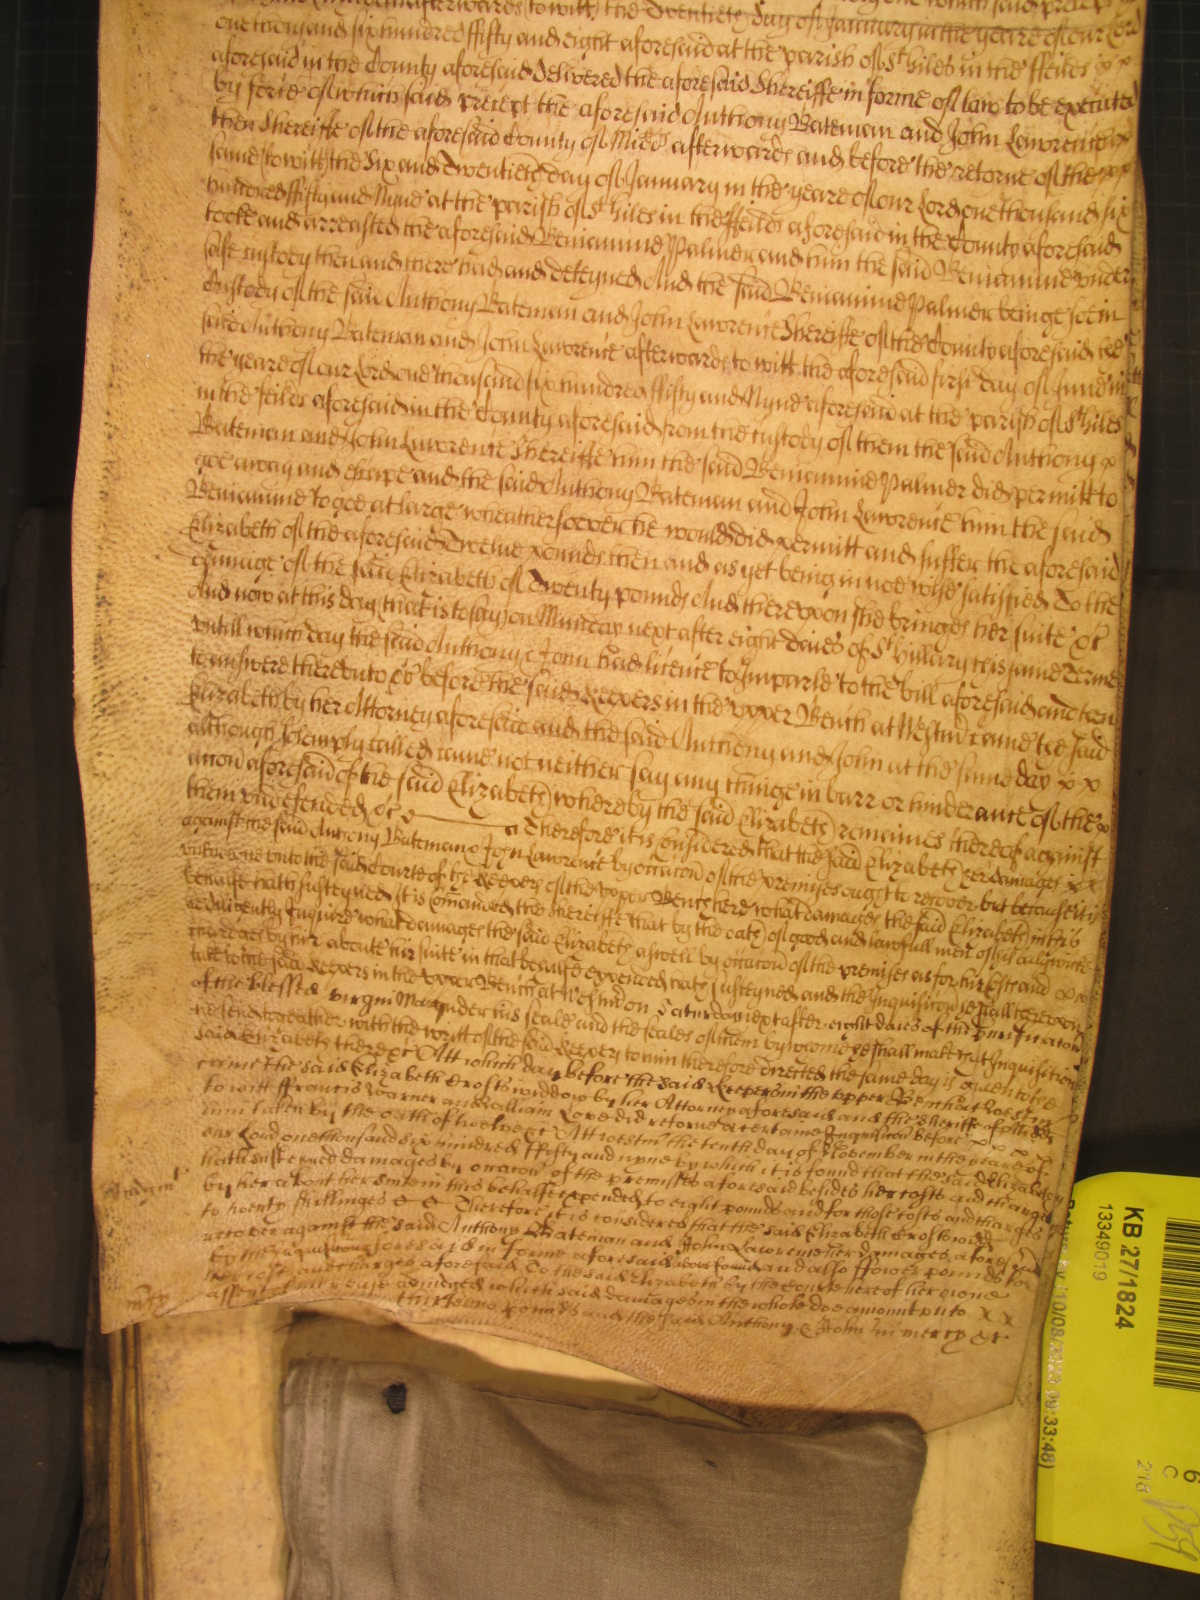 afterwards (to witt) the Twentieth day of January in the yeare of our Lord
one thousand six hundred ffifty and eight aforesaid at the parish of St Giles in the ffeilds x x
aforesaid in the County aforesaid delivered the aforesaid Shereiffe in forme of law to be executed
by force of which said precept the aforesaid Anthony Bateman and John Lawrence x
then Shereiffe of the aforesaid County of Midd afterwards and before the retorne of the x x
same (to witt) the Six and Twentieth day of January in the yeare of our Lord one thousand six
hundred ffifty and Nyne at the parish of St Giles in the ffeilds aforesaid in the County aforesaid
tooke and arreasted the aforesaid Beniamine Palmer and him the said Beniamine under
safe custody then and there had and deteyned And the said Beniamine Palmer beinge soe in
Custody of the said Anthony Bateman and John Lawrence Shereiffe of the County aforesaid the
said Anthony Bateman and John Lawrence afterwards to witt the aforesaid first day of June in
the yeare of our Lord one thousand six hundred ffifty and Nyne aforesaid at the parish of St Giles
in the feilds aforesaid in the County aforesaid from the custody of them the said Anthony x
Bateman and John Lawrence Shereiffe him the said Beniamine Palmer did permitt to
goe away and escape and the said Anthony Bateman and John Lawrence him the said
Beniamine to goe at large wheathersoever he would did permitt and suffer the aforesaid
Elizabeth of the aforesaid Twelve pounds then and as yet being in noe wise satisfied To the
damage of the said Elizabeth of Twenty pounds And thereupon she bringes her suite &c
And now at this day that is to say on Munday next after eight daies of St Hillary this same Terme
untill which day the said Anthony & John had licence to Imparle to the bill aforesaid and then
to answere thereunto &c before the said Keepers in the upper Bench at Westm came the said
Elizabeth by her Attorney aforesaid and the said Anthony and John at the same day x x
although solemply called came not neither say any thinge in barr or hinderance of the x
accon aforesaid of the said Elizabeth whereby the said Elizabeth remaines thereof against
them undefended &c Therefore it is considered that the said Elizabeth her damages x x
against the said Anthony Bateman & John Lawrence by occacon of the premises ought to recover but because it is
unknowne unto the said Courte of the Keepers of the upper Bench here what damages the said Elizabeth in this
behalfe hath susteyned it is Comanded the Shereiffe that by the oath of good and lawfull men of his baliwicke
he diligently Inquire what damages the said Elizabeth aswell by occacon of the premises as for hir Costs and x x
charges by hir about hir suite in that behalfe expended hath susteyned and the Inquisicon he shall thereupon
take to the said Keepers in the upper Bench at Westm on Saturday next after eight daies of the Purificacon
of the blessed virgin Mary under his seale and the seales of them by whome he shall make that Inquisition
he send togeather with the writt of the said Keepers to him therefore directed the same day is given to the
said Elizabeth there &c Att which day before the said Keepers in the upper Bench at Westm
came the said Elizabeth Crosts widdow by her Attorney aforesaid and the Sheriffe of Midd
to witt ffrancis Warner and William Love did retorne a certaine Inquisicon before x x x x
him taken by the oath of twelve &c Att Westm the tenth day of November in the yeare of
our Lord one thousand six hundred ffifty and nyne by which it is found that the said Elizabeth
hath susteyned damages by occacon of the premisses aforesaid besides her costs and charges
by her about her suite in this behalfe expended to eight pounds and for those costs and charges
to twenty shillinges &c &c Therefore it is considered that the said Elizabeth Crosts doe
recover against the said Anthony Bateman and John Lawrence her damages aforesaid
by the Inquisicon aforesaid in forme aforesaid above found and also ffower pounds for
her costs and charges aforesaid To the said Elizabeth by the Courte here of her owne
assent adiudged which said damages in the whole doe amount unto x x
thirteene pounds and the said Anthony & John in mercy &c
KB 27/1824
13349019
(10/08/2023 09:33:48)
6
C
218